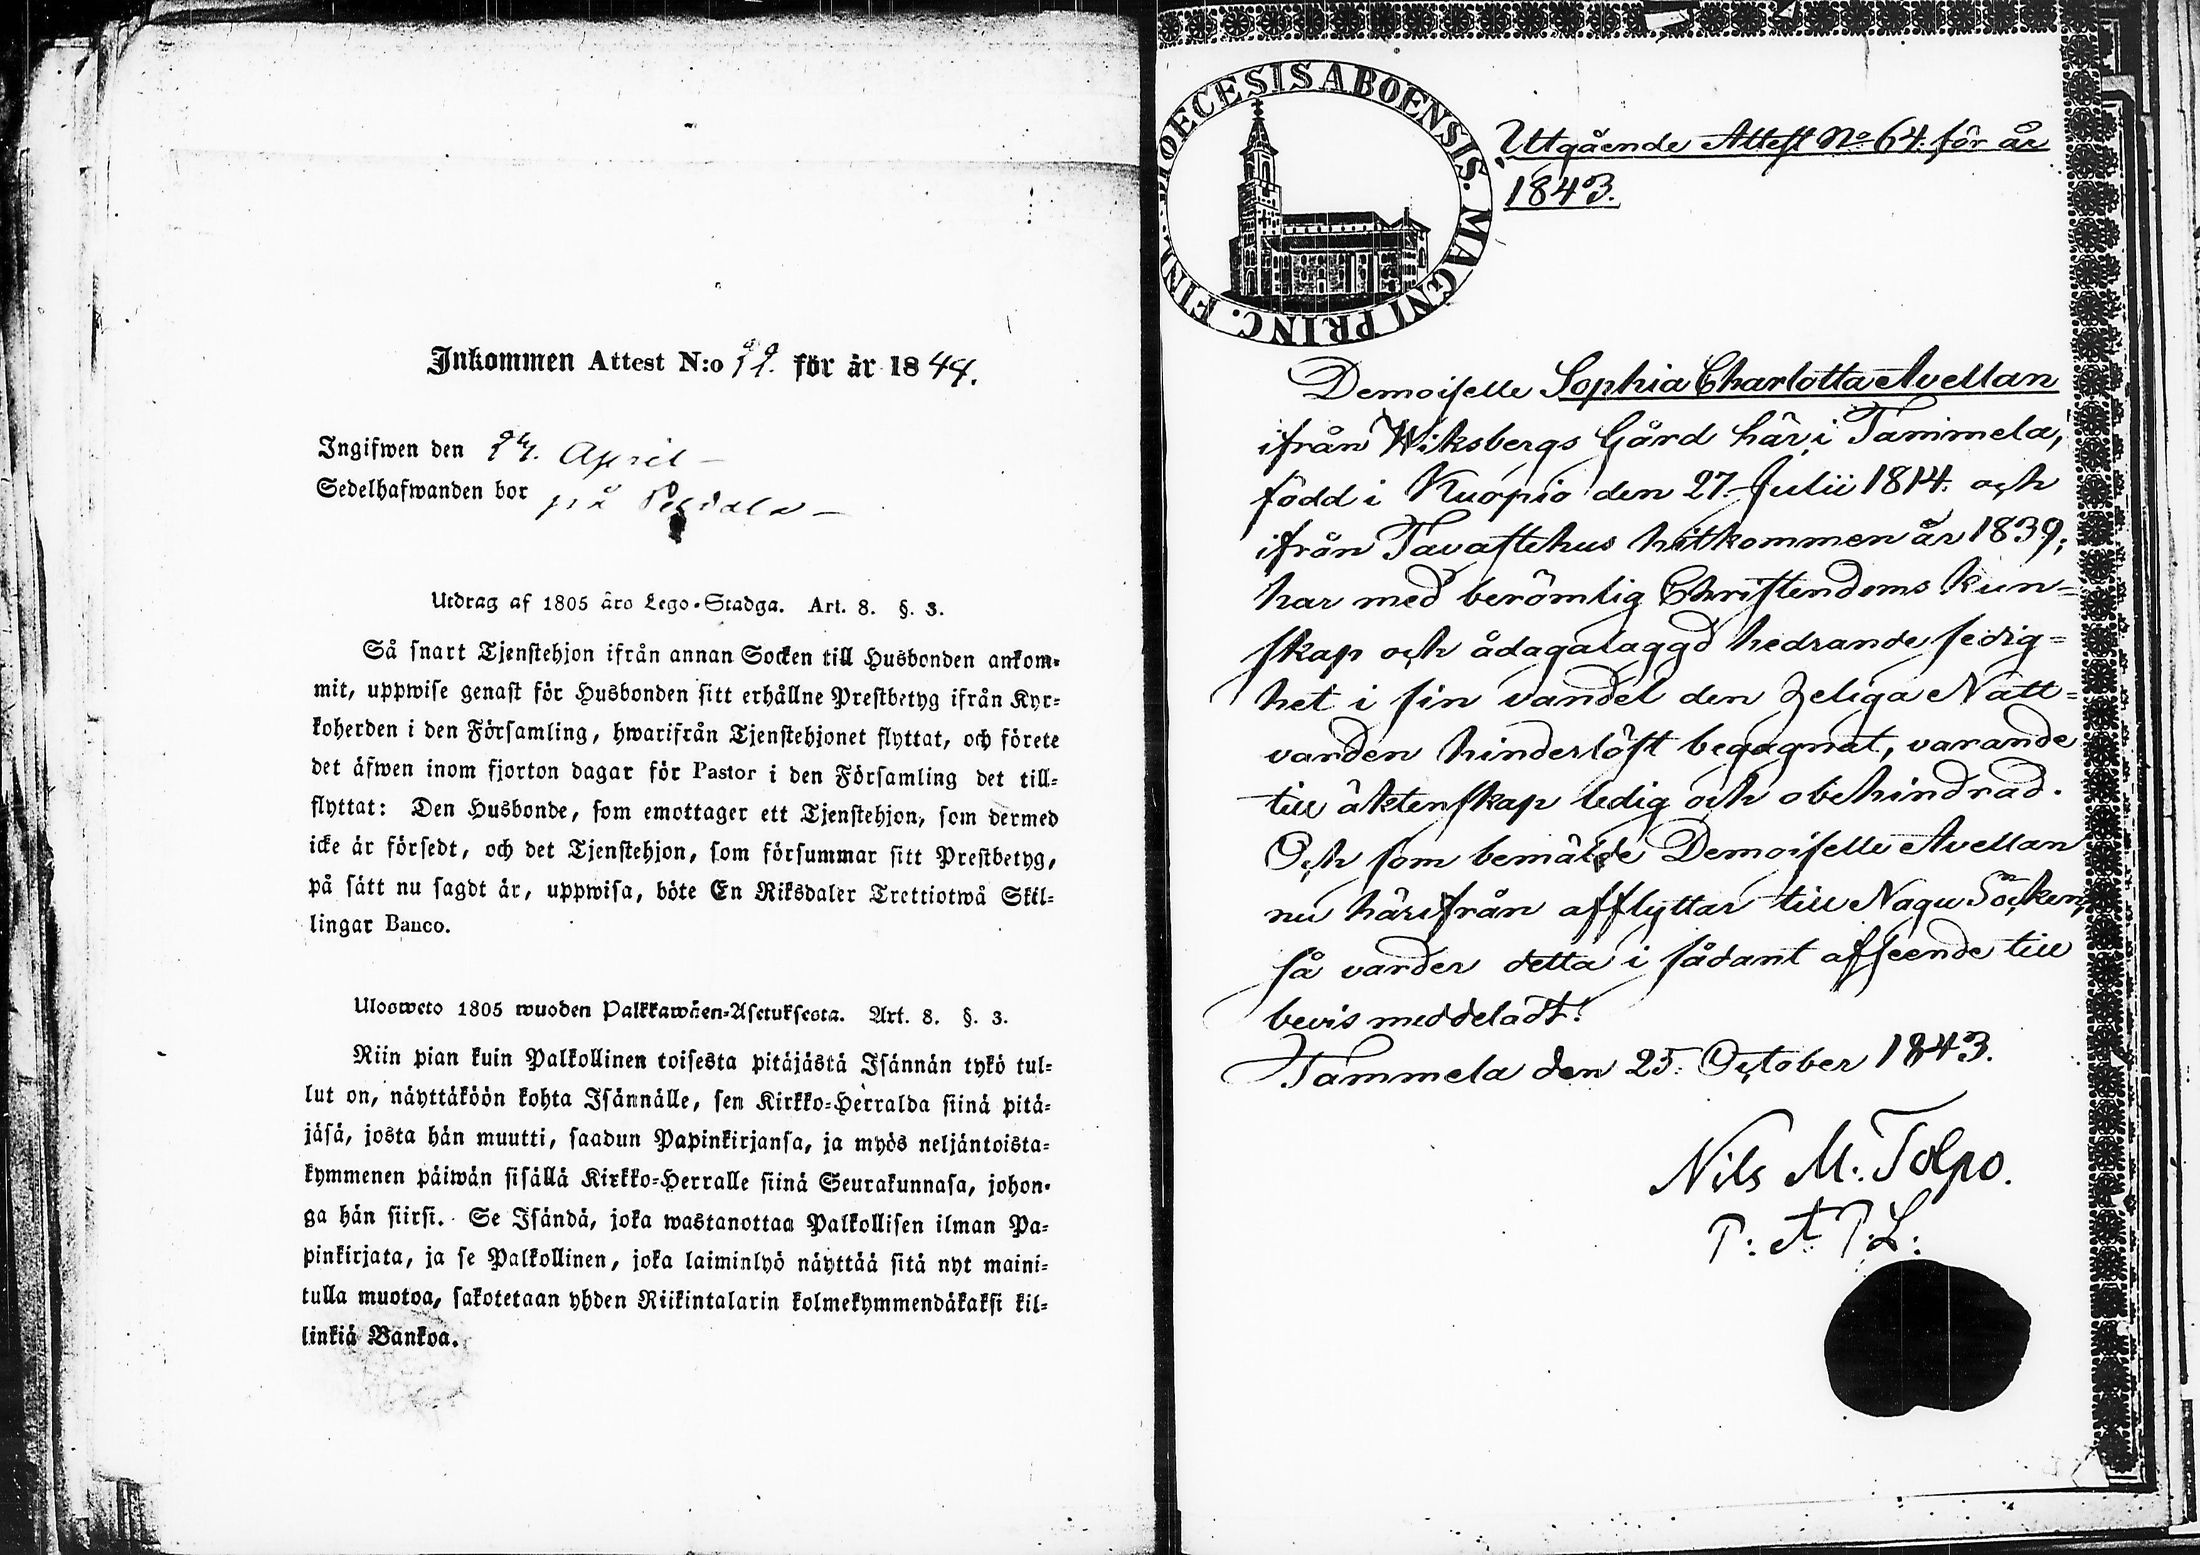 Inkommen Attest N:o för år 1844.
Ingifwen den 24. April
Sedelhafwanden bor på
Utdrag af 1805 års Lego-Stadga. Art. 8. §. 3.
Så snart Tjenstehjon ifrån annan Socken till Husbonden ankom-
mit, uppwise genast för Husbonden sitt erhållne Prestbetyg ifrån Kyr-
koherden i den Församling, hwarifrån Tjenstehjonet flyttat, och förete
det äfwen inom fjorton dagar för Pastor i den Församling det till-
flyttat: Den Husbonde, som emottager ett Tjenstehjon, som dermed
icke är försedt, och det Tjenstehjon, som försummar sitt Prestbetyg,
på sätt nu sagdt är, uppwisa, böte En Riksdaler Trettiotwå Skil-
lingar Banco.
Ulosweto 1805 wuoden Palkkawäen-Asetuksesta. Art. 8. §. 3.
Niin pian kuin Palkollinen toisesta pitäjästä Isännän tykö tul-
lut on, näyttäköön kohta Isännälle, sen Kirkko-Herralda siinä pitä-
jäsä, josta hän muutti, saadun Papinkirjansa, ja myös neljäntoista-
kymmenen päiwän sisällä Kirkko-Herralle siinä Seurakunnasa, johon-
ga hän siirsi. Se Isändä, joka wastanottaa Palkollisen ilman Pa-
pinkirjata, ja se Palkollinen, joka laiminlyö näyttää sitä nyt maini-
tulla muotoa, sakotetaan yhden Riikintalarin kolmekymmendäkaksi kil-
linkiä Bankoa.
DIOECESIS ABOENSIS. MAGNI PRINC. FINL.
Utgående Attest No 64. för år
1843.
Demoiselle Sophia Charlotta Avellan
ifrån Wiksbergs Gård här i Tammela,
född i Kuopio den 27. Julii 1814. och
ifrån Tavastehus hitkommen år 1839;
har med berömlig Christendoms kun-
skap och ådagalaggd hedrande sedig-
het i sin vandel den Heliga Natt-
varden hinderlöst begagnat, varande
till äktenskap ledig och obehindrad.
Och som bemälde Demoiselle Avellan
nu härifrån afflyttar till Nagu Socken,
så varder detta i sådant afseende till
bevis meddeladt.
Tammela den 25. October 1843.
Nils M. Tolpo.
P: A: P: L: